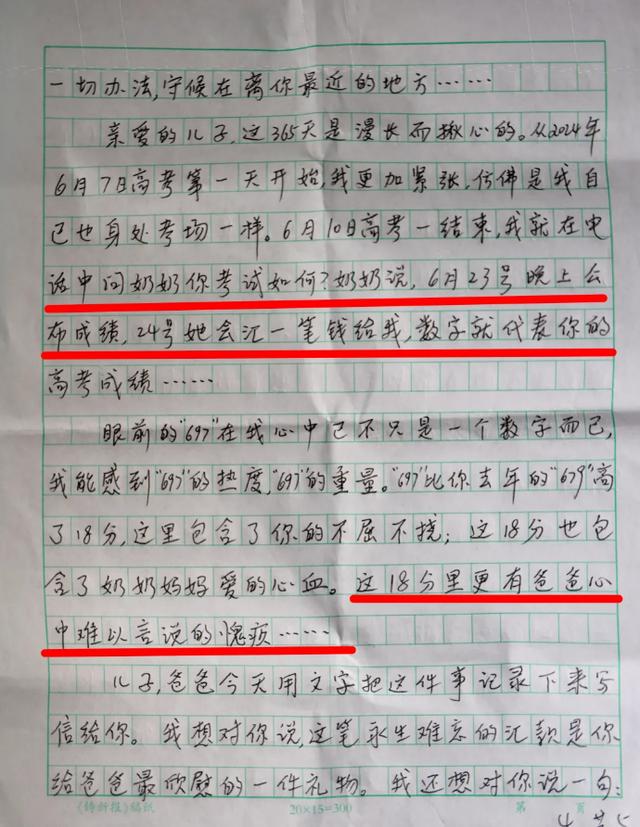 一切办法，守候在离你最近的地方……
亲爱的儿子，这365天是漫长而揪心的。从2024年
6月7日高考第一天开始，我更加紧张，仿佛是我自
己也身处考场一样。6月10日高考一结束，我就在电
话中问奶奶你考试如何？奶奶说，6月23号晚上公
布成绩，24号她会汇一笔钱给我，数字就代表你的
高考成绩……
眼前的“697”在我心中已不只是一个数字而已，
我能感到“697”的热度，“697”的重量。“697”比你去年的“679”高
了18分，这里包含了你的不屈不挠；这18分也包
含了奶奶妈妈爱的心血。这18分里更有爸爸心
中难以言说的愧疚……
儿子，爸爸今天用文字把这件事记录下来写
信给你。我想对你说，这笔永生难忘的汇款是你
给爸爸最欣慰的一件礼物。我还想对你说一句：
《铸新报》稿纸 20×15=300 第 页